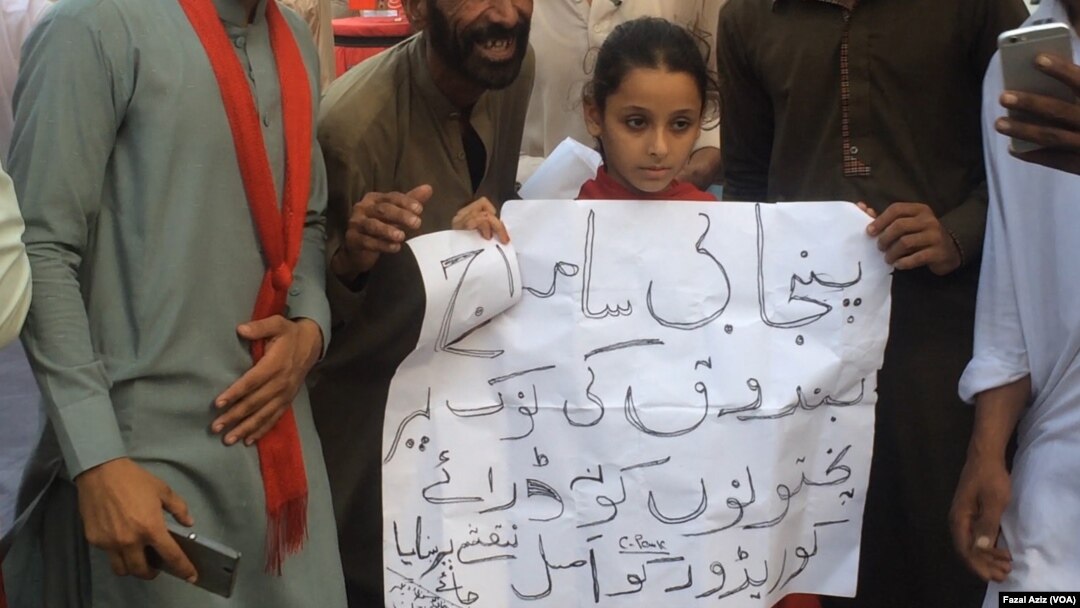 پنجابی سامراج
بندوق کی نوک پر
پختونوں کو نہ ڈرائے
C-Pak
کوریڈور کو اصل نقشے پر بنایا
جائے
Fazal Aziz (VOA)